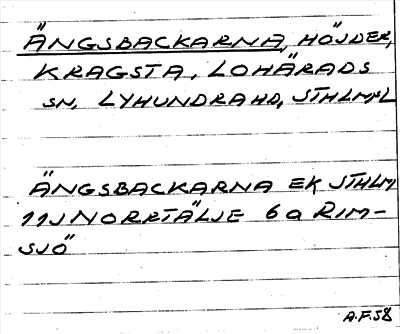 ÄNGSBACKARNA, HÖJDER,
KRAGSTA, LOHÄRADS
SN, LYHUNDRA HD, STHLMS L
ÄNGSBACKARNA EK STHLM
11J NORRTÄLJE 6a RIM-
SJÖ
A.F.58